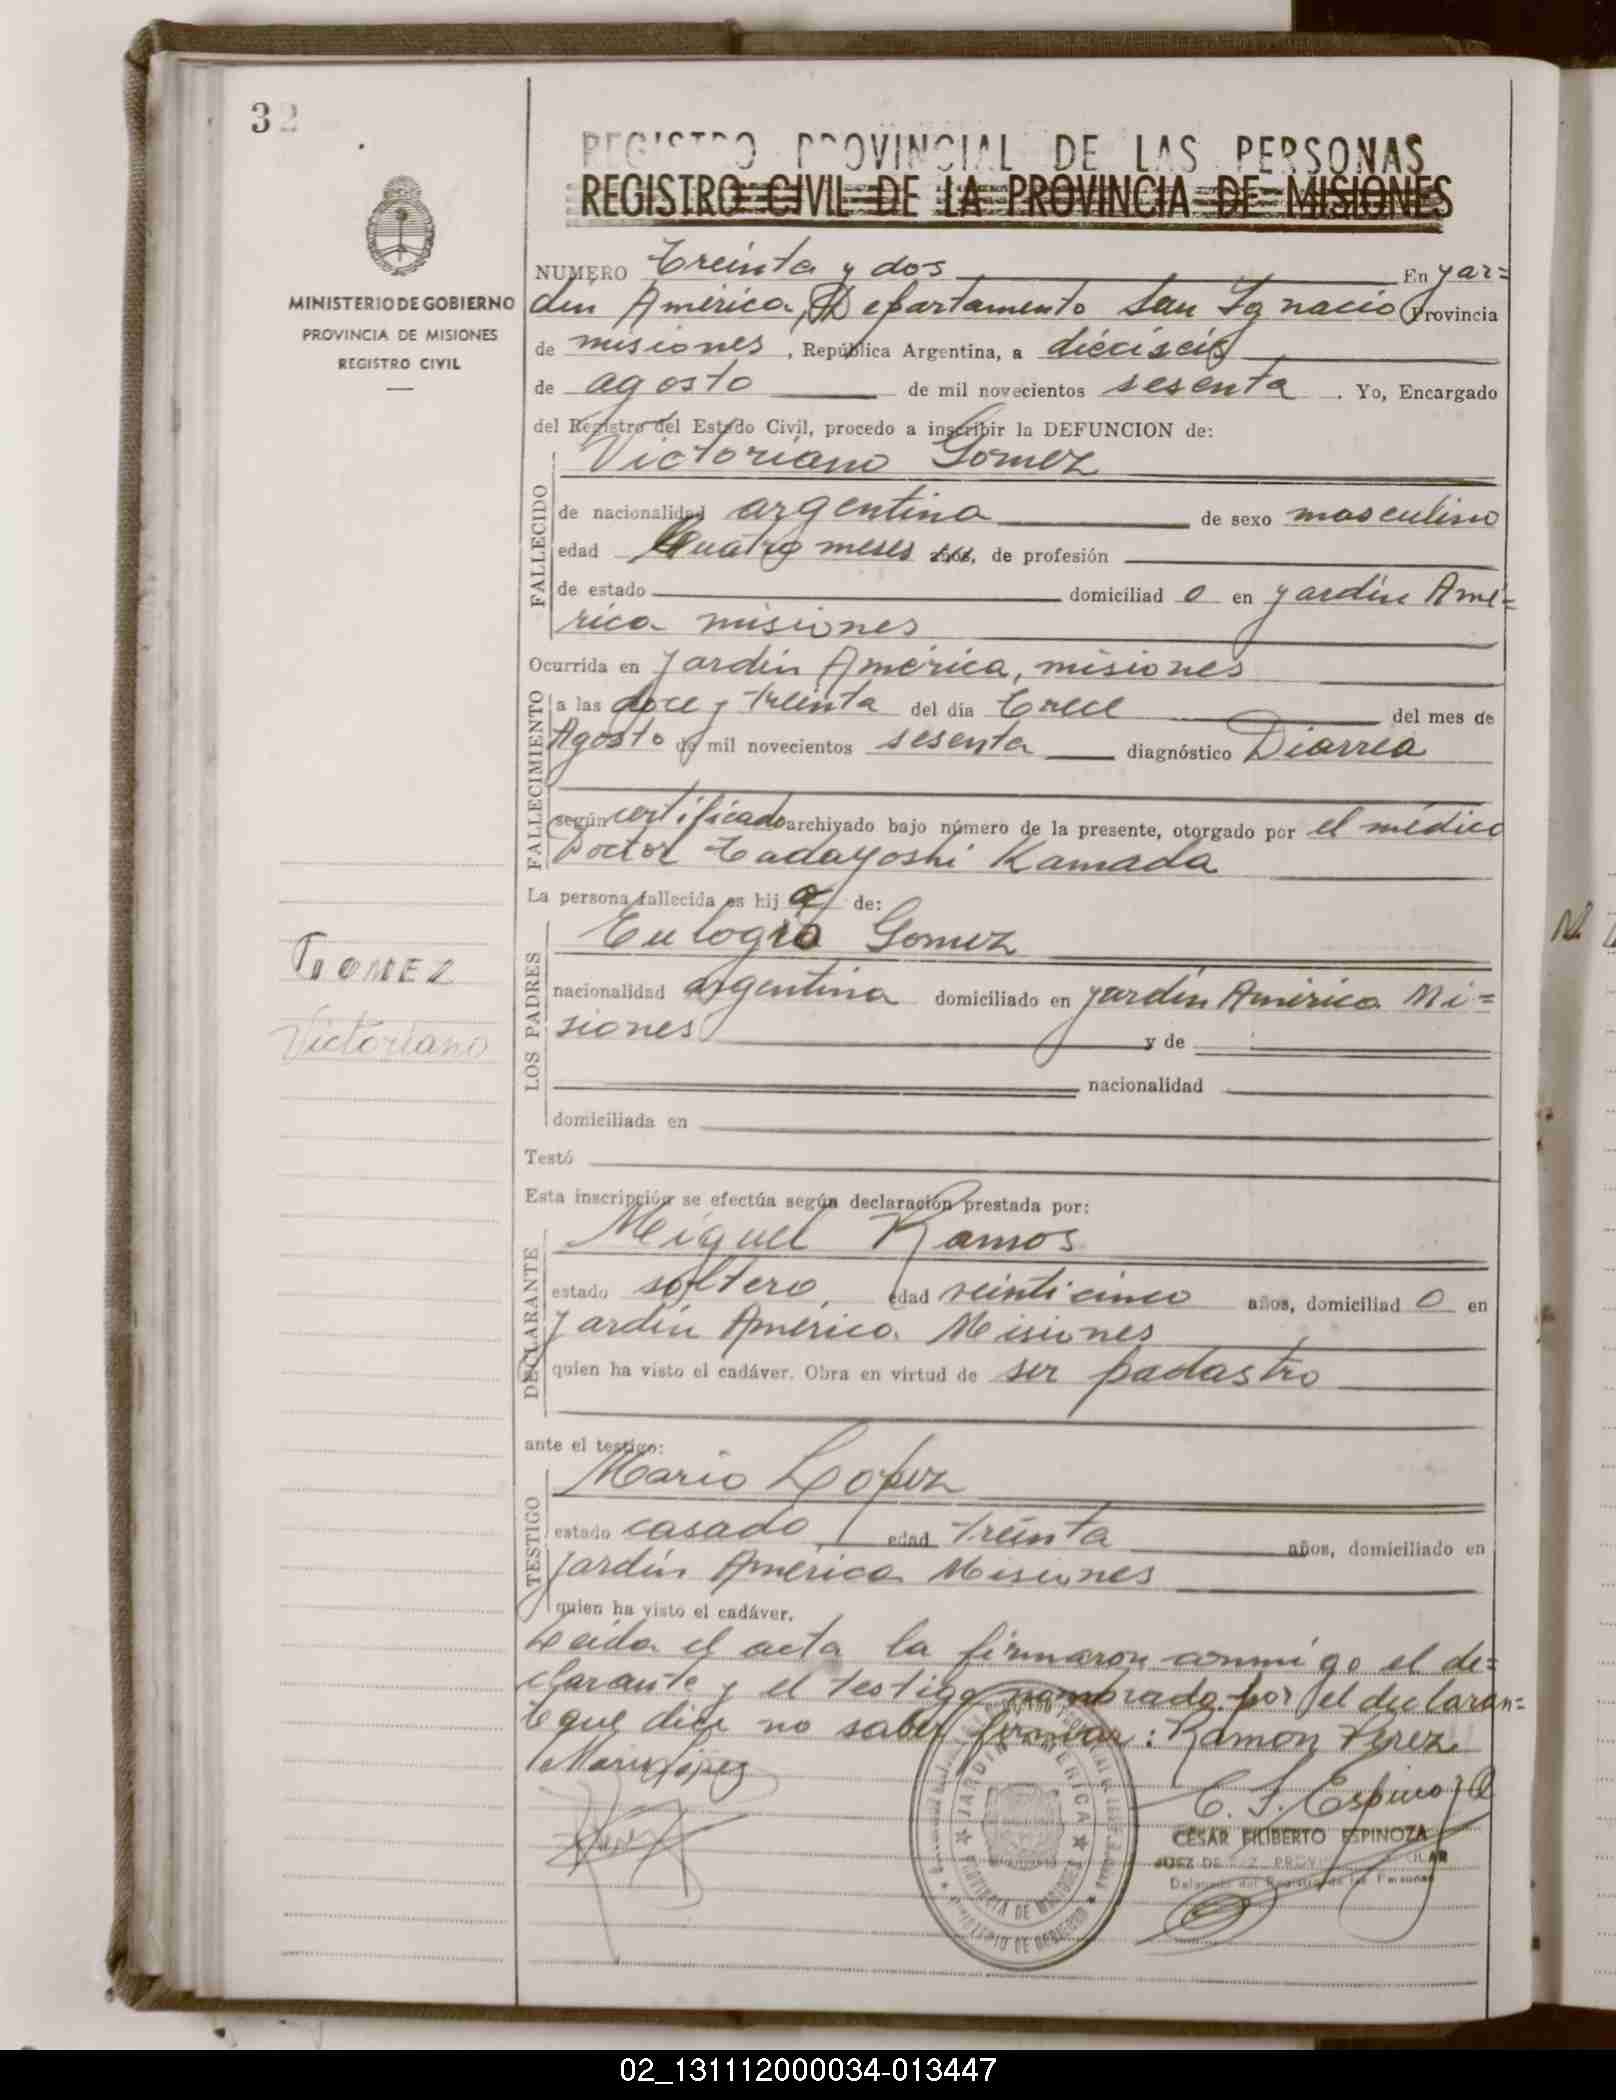 32
REGISTRO PROVINCIAL DE LAS PERSONAS
REGISTRO CIVIL DE LA PROVINCIA DE MISIONES
MINISTERIO DE GOBIERNO
PROVINCIA DE MISIONES
REGISTRO CIVIL
NUMERO Treinta y dos En Jar=
din América, Departamento San Ignacio Provincia
de misiones, República Argentina, a dieciseis
de agosto de mil novecientos sesenta. Yo, Encargado
del Registro del Estado Civil, procedo a inscribir la DEFUNCION de:
Victoriano Gomez
FALLECIDO
de nacionalidad argentina de sexo masculino
edad Cuatro meses años, de profesión
de estado domiciliad o en Jardín Amé=
rica misiones
Ocurrida en Jardín América, misiones
FALLECIMIENTO
a las doce y treinta del día Trece del mes de
Agosto de mil novecientos sesenta diagnóstico Diarrea
según certificado archivado bajo número de la presente, otorgado por el médico
Doctor Tadayoshi Kamada
La persona fallecida es hij o de:
LOS PADRES
Eulogia Gomez
nacionalidad argentina domiciliado en Jardín América Mi=
siones y de
nacionalidad
domiciliada en
GOMEZ
Victoriano
Testó
Esta inscripción se efectúa según declaración prestada por:
DECLARANTE
Miguel Ramos
estado soltero, edad veinticinco años, domiciliad o en
Jardín América Misiones
quien ha visto el cadáver. Obra en virtud de ser padastro
ante el testigo:
TESTIGO
Mario Lopez
estado casado, edad treinta años, domiciliado en
Jardín América Misiones
quien ha visto el cadáver.
Leida el acta la firmaron conmigo el de=
clarante y el testigo nombrado por el declaran=
te que dice no saber firmar: Ramon Perez
Mario Lopez
C. F. Espinoza
CESAR FILIBERTO ESPINOZA
JUEZ DE PAZ
Delegado del Registro de las Personas
JARDIN AMERICA
PROVINCIA DE MISIONES
MINISTERIO DE GOBIERNO
02_131112000034-013447